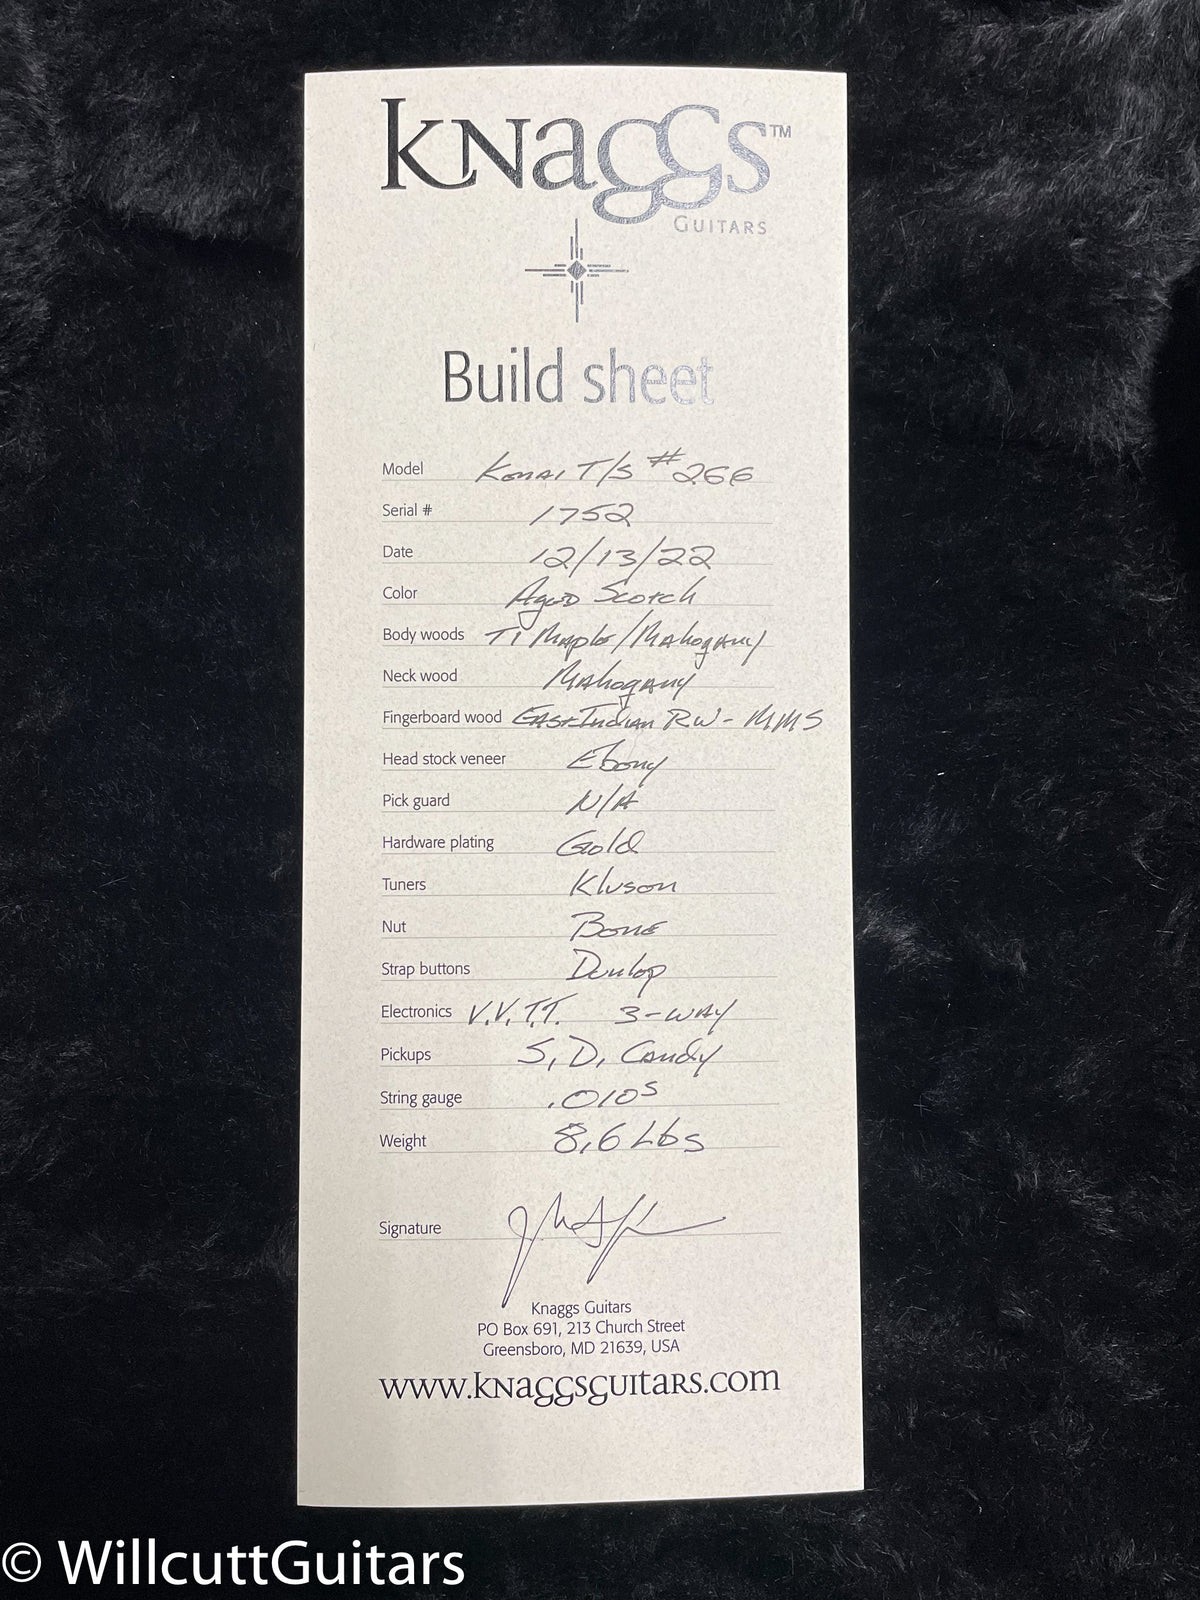 Knaggs™
Guitars
Build sheet
Model Kenai T/S #266
Serial # 1752
Date 12/13/22
Color Aged Scotch
Body woods T1 Maple/Mahogany
Neck wood Mahogany
Fingerboard wood East Indian RW- MMS
Head stock veneer Ebony
Pick guard N/A
Hardware plating Gold
Tuners Kluson
Nut Bone
Strap buttons Dunlop
Electronics V.V.T.T. 3-way
Pickups S.D. Candy
String gauge .010s
Weight 8.6 Lbs
Signature
Knaggs Guitars
PO Box 691, 213 Church Street
Greensboro, MD 21639, USA
www.knaggsguitars.com
© WillcuttGuitars